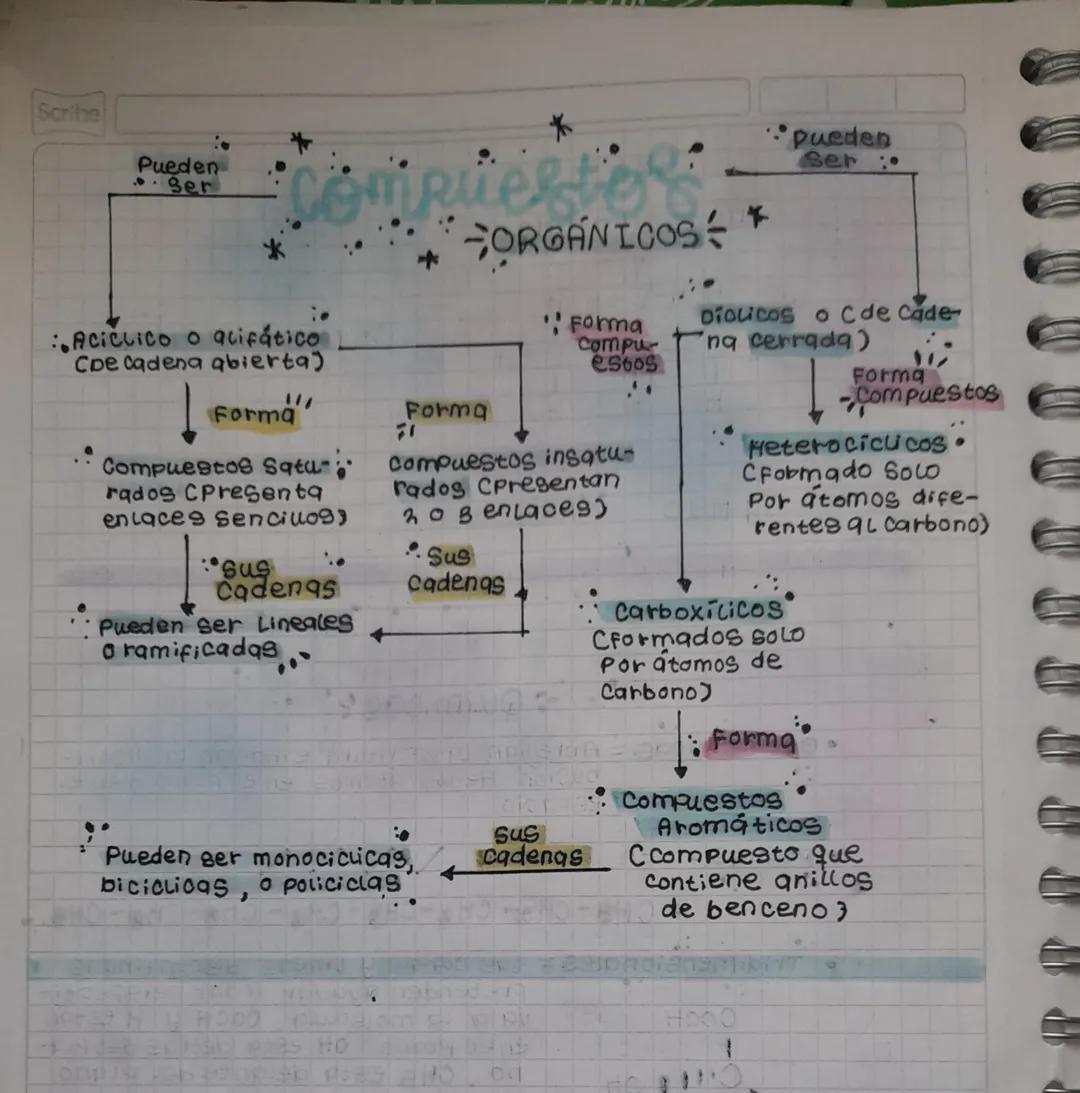 Scribe
Pueden
Ser
Pueden
Ser
Compuestos
ORGÁNICOS
Aciclico o alifático
(De cadena abierta)
Forma
Compuestos Satu-
rados (Presenta
enlaces sencillos)
Sus
Cadenas
Pueden ser Lineales
o ramificadas
Forma
Compuestos insatu-
rados (Presentan
2 o 3 enlaces)
Sus
Cadenas
Forma
Compu-
estos
Diclicos o (de Cade-
na cerrada)
Forma
Compuestos
Heterociclicos
(Formado Solo
Por átomos dife-
rentes al Carbono)
Carboxílicos
(Formados solo
Por átomos de
Carbono)
Forma
Compuestos
Aromáticos
(Compuesto que
contiene anillos
de benceno)
Sus
Cadenas
Pueden ser monociclicas,
biciclicas, o policiclas